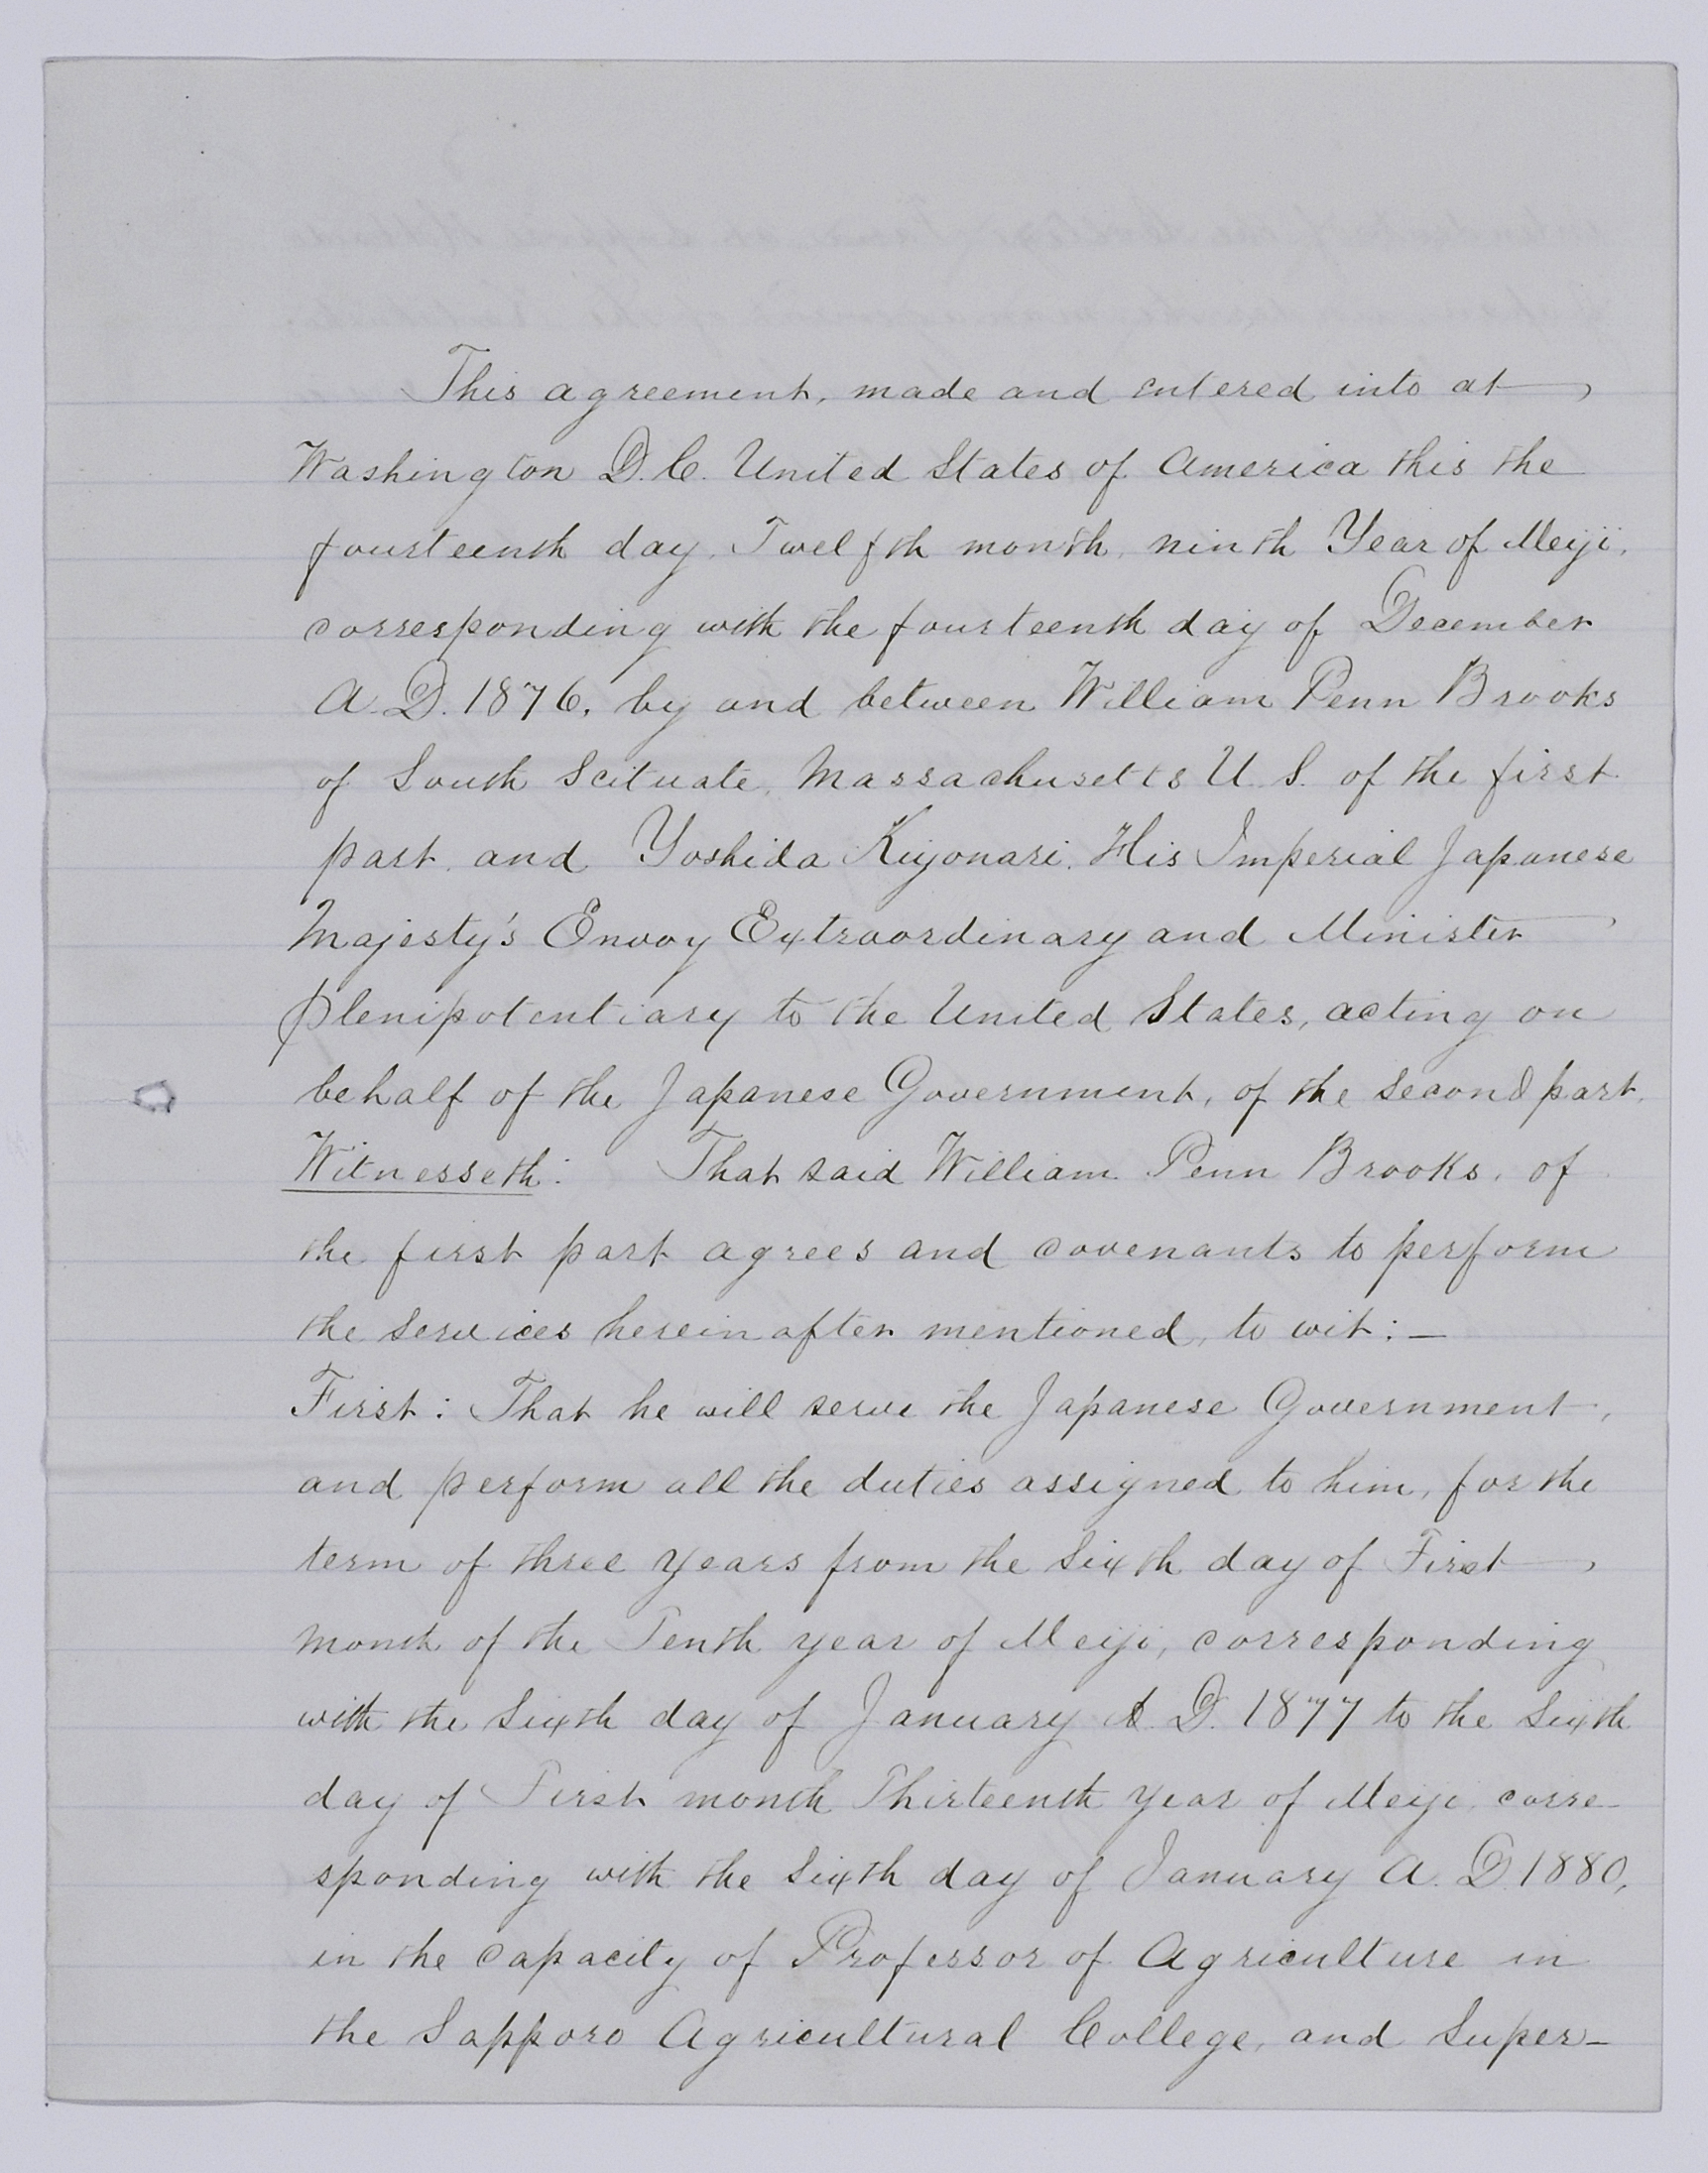 This agreement, made and entered into at
Washington D.C. United States of America this the
fourteenth day, Twelfth month, ninth Year of Meiji,
corresponding with the fourteenth day of December
A.D. 1876, by and between William Penn Brooks
of South Scituate, Massachusetts U.S. of the first
part, and Yoshida Kiyonari, His Imperial Japanese
Majesty's Envoy Extraordinary and Minister
Plenipotentiary to the United States, acting on
behalf of the Japanese Government, of the second part,
Witnesseth: That said William Penn Brooks, of
the first part agrees and covenants to perform
the services herein after mentioned, to wit:—
First: That he will serve the Japanese Government,
and perform all the duties assigned to him, for the
term of three years from the sixth day of First
month of the Tenth year of Meiji, corresponding
with the sixth day of January A.D. 1877 to the sixth
day of First month Thirteenth year of Meiji, corre-
sponding with the sixth day of January A.D. 1880,
in the capacity of Professor of Agriculture in
the Sapporo Agricultural College, and Super-